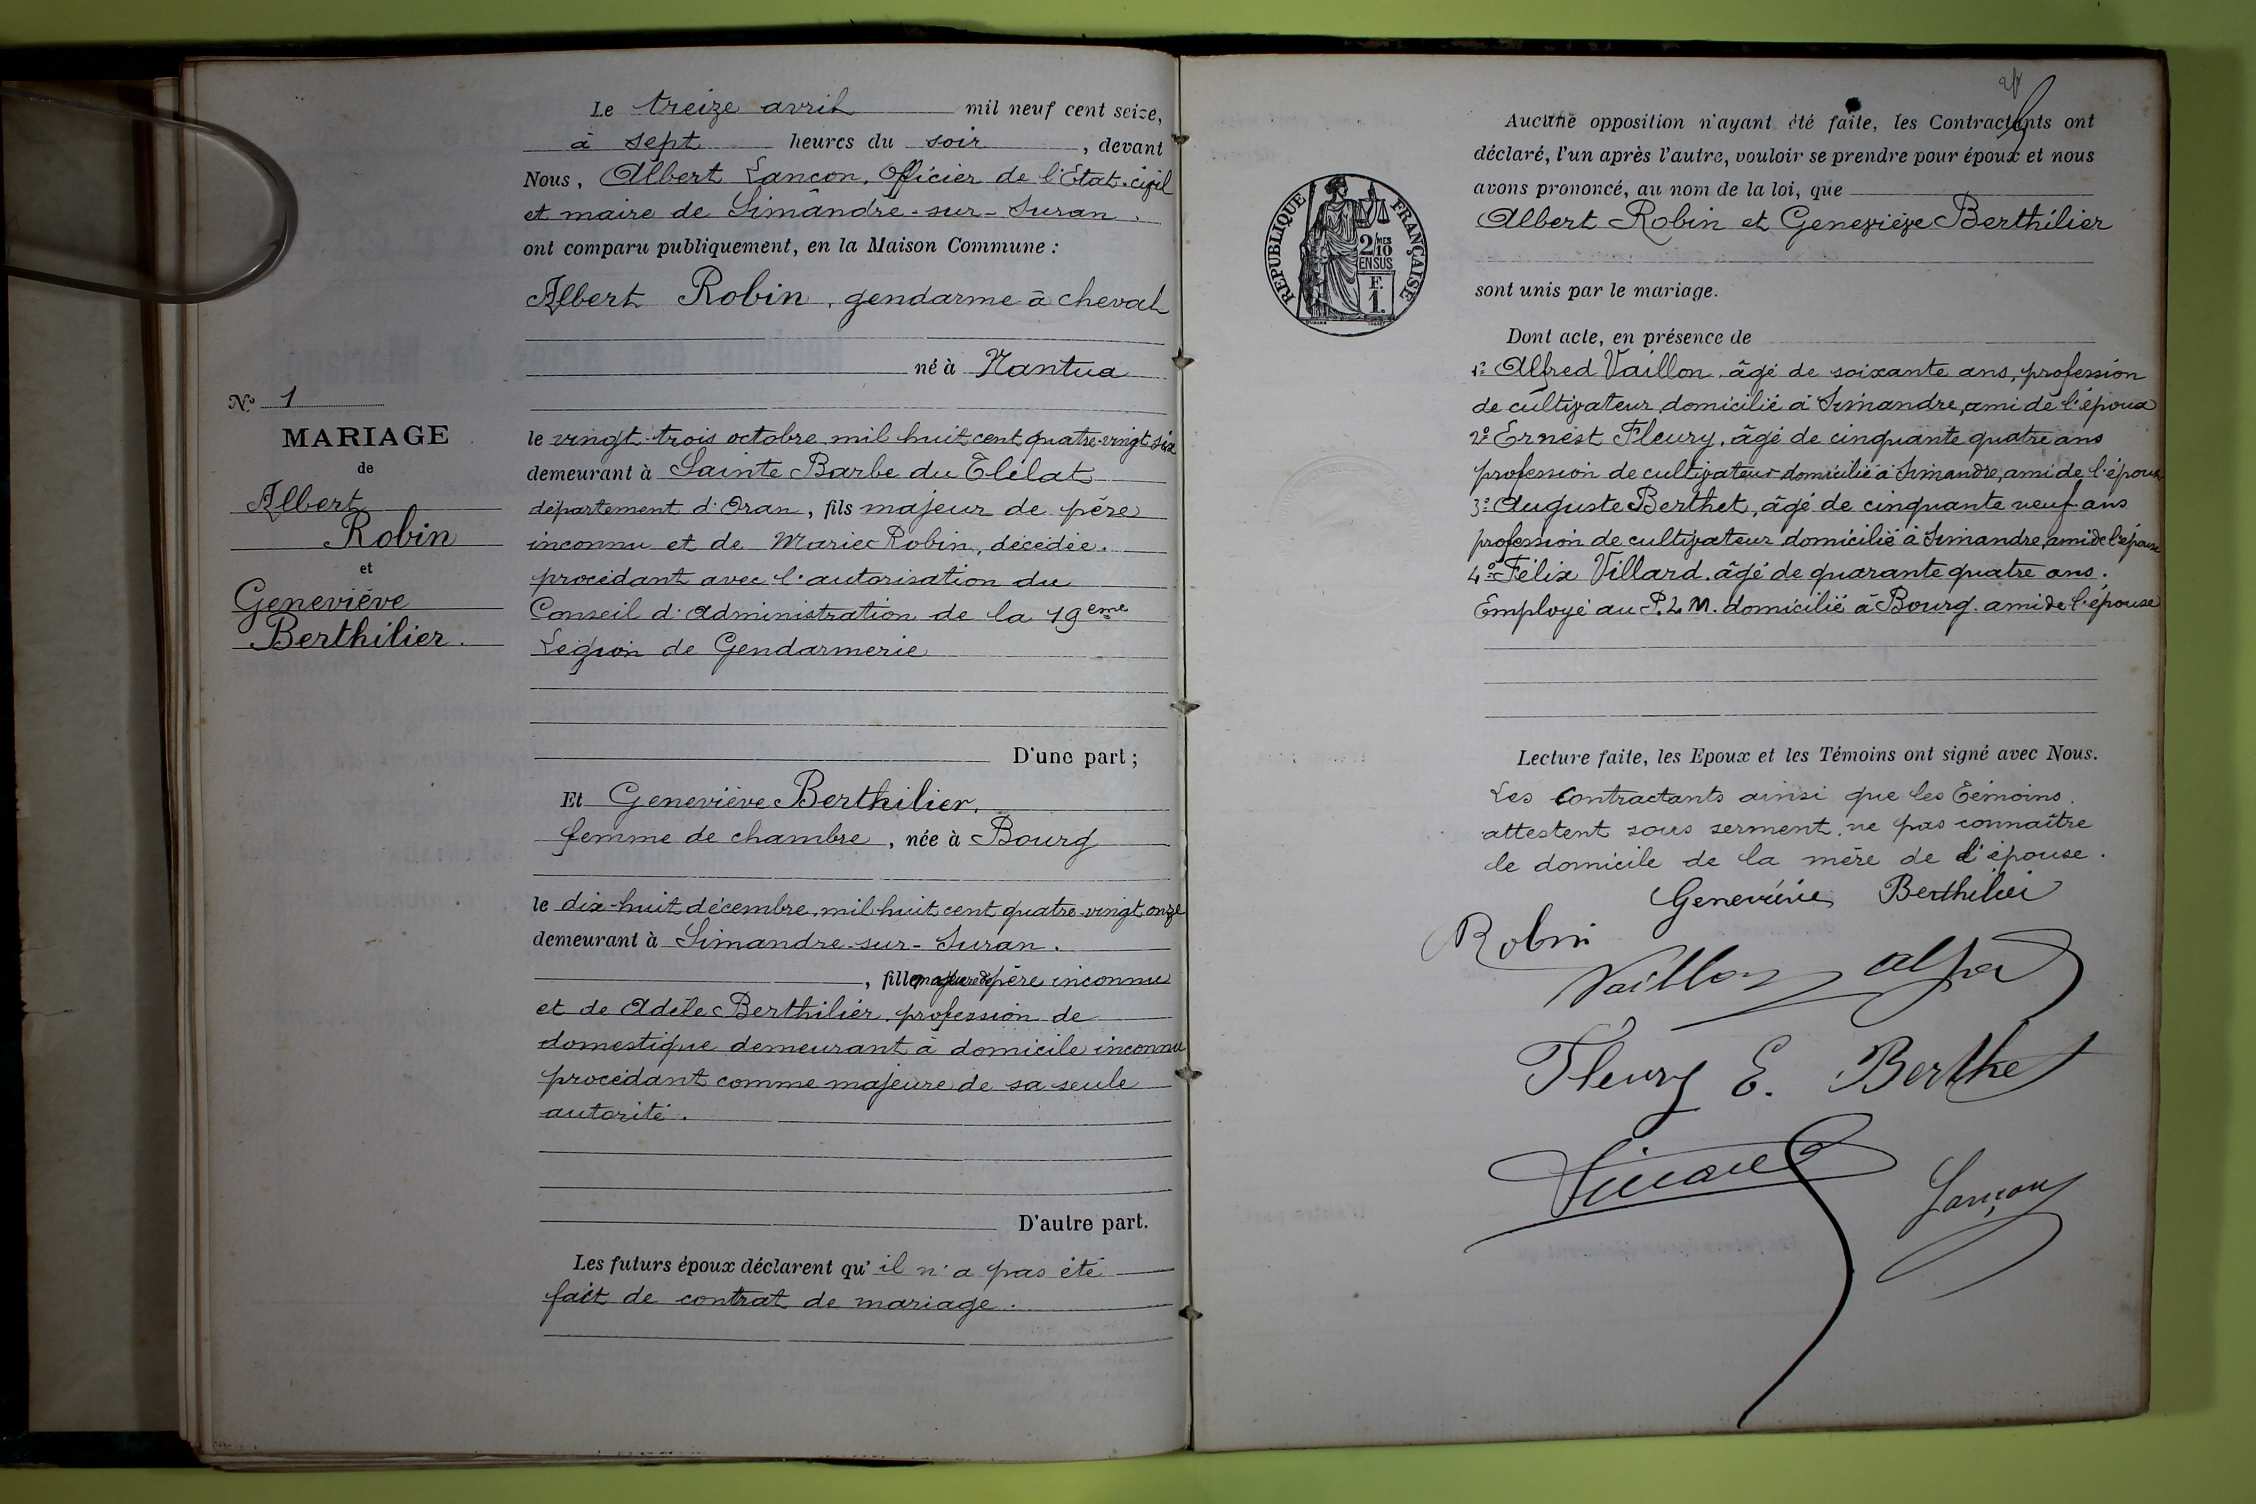 Le treize avril mil neuf cent seize,
à sept heures du soir, devant
Nous, Albert Lançon, Officier de l'Etat-civil
et maire de Simandre-sur-Suran.
ont comparu publiquement, en la Maison Commune :
Albert Robin, gendarme à cheval
né à Nantua
le vingt-trois octobre mil huit cent quatre-vingt six
demeurant à Sainte Barbe du Tlélat
département d'Oran, fils majeur de père
inconnu et de Marie Robin, décédée.
procédant avec l'autorisation du
Conseil d'administration de la 19eme
Légion de Gendarmerie
D'une part ;
N° 1
MARIAGE
de
Albert
Robin
et
Geneviève
Berthilier.
Et Geneviève Berthilier,
femme de chambre, née à Bourg
le dix-huit décembre mil huit cent quatre-vingt onze
demeurant à Simandre-sur-Suran.
, fille majeure de père inconnu
et de Adèle Berthilier, profession de
domestique demeurant à domicile inconnu
procédant comme majeure de sa seule
autorité.
D'autre part.
Les futurs époux déclarent qu'il n'a pas été
fait de contrat de mariage.
Aucune opposition n'ayant été faite, les Contractants ont
déclaré, l'un après l'autre, vouloir se prendre pour époux et nous
avons prononcé, au nom de la loi, que
Albert Robin et Geneviève Berthilier
sont unis par le mariage.
REPUBLIQUE FRANÇAISE
2/10MES
EN SUS
F.
1.
Dont acte, en présence de
1° Alfred Vaillon, âgé de soixante ans, profession
de cultivateur domicilié à Simandre, ami de l'époux
2° Ernest Fleury, âgé de cinquante quatre ans
profession de cultivateur domicilié à Simandre, ami de l'époux
3° Auguste Berthet, âgé de cinquante neuf ans
profession de cultivateur domicilié à Simandre, ami de l'épouse
4° Félix Villard, âgé de quarante quatre ans.
Employé au P.L.M. domicilié à Bourg. ami de l'épouse
Lecture faite, les Epoux et les Témoins ont signé avec Nous.
Les contractants ainsi que les témoins.
attestent sous serment, ne pas connaître
le domicile de la mère de l'épouse.
Geneviève Berthilier
Robin
Vaillon
Fleury E. Berthet
Lançon